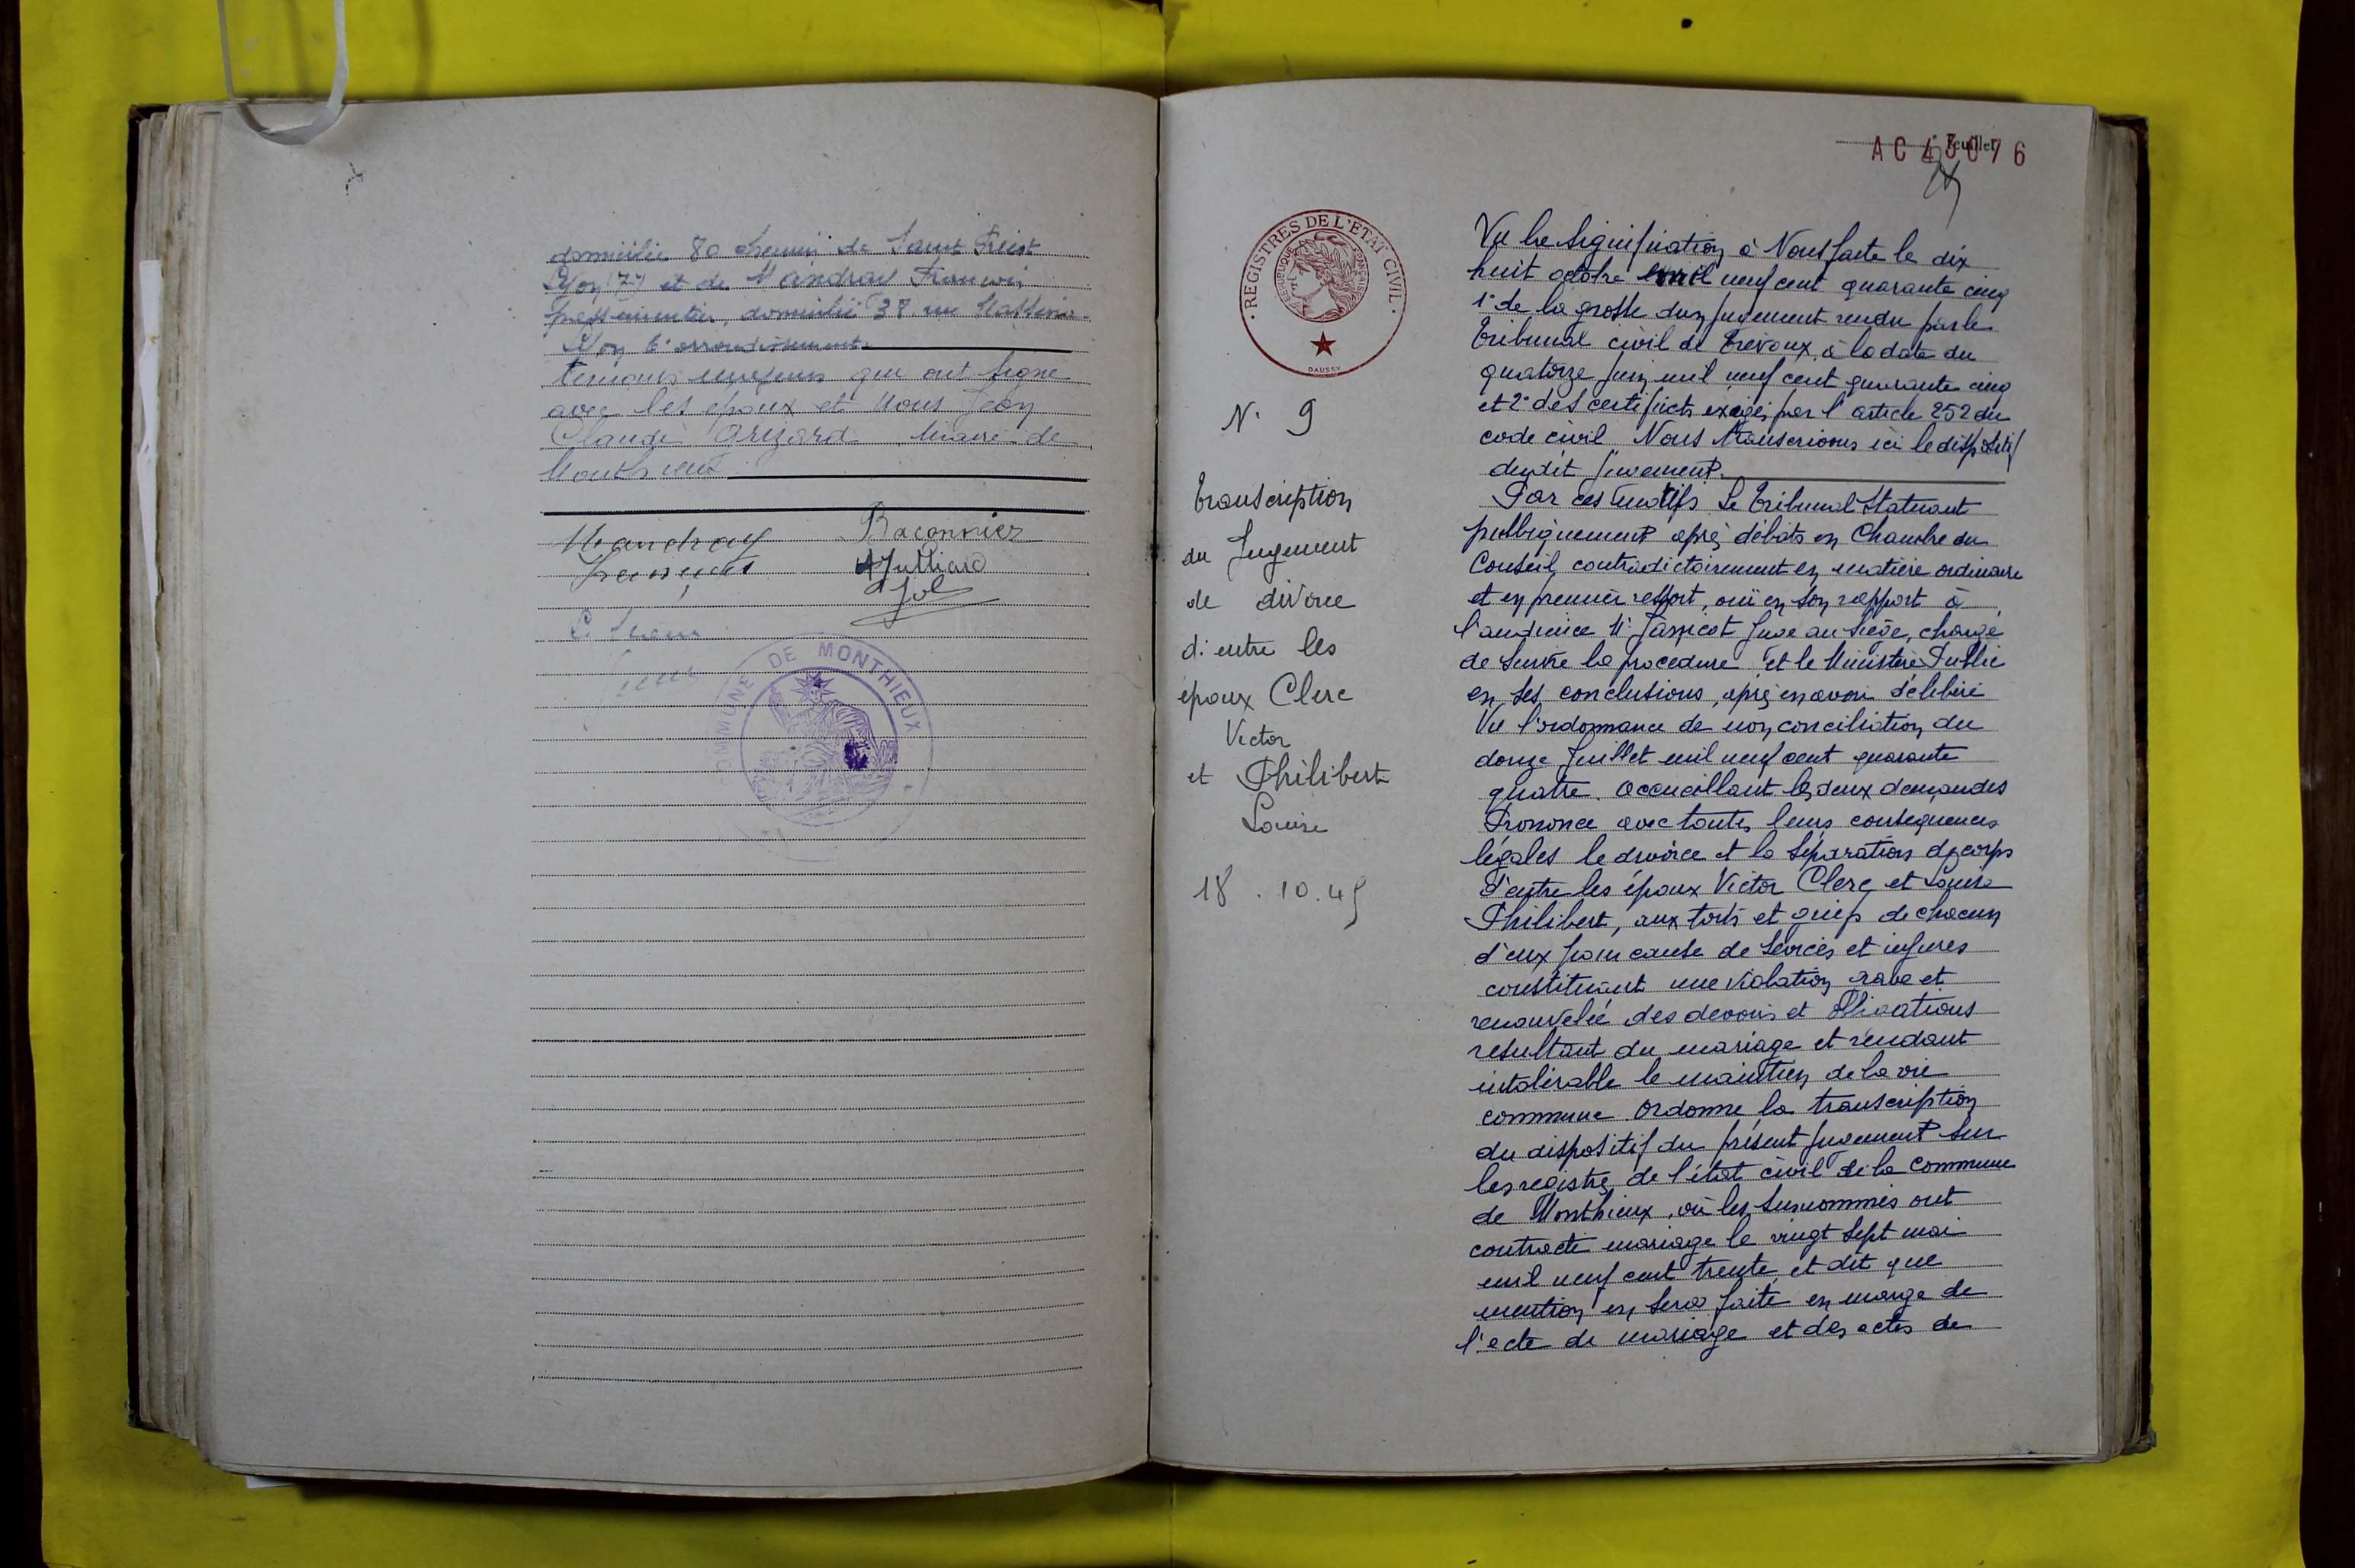 domicilié 80 chemin de Saint Priest
Lyon (7e) et de Mandray François
domicilié 38 rue
Lyon 6e arrondissement
témoins majeurs qui ont signé
avec les époux et Nous Jean
Claude Grizard Maire de
Monthieux
Mandray Baconnier
François AJulliard
Jol
Le Maire
COMMUNE DE MONTHIEUX
Feuillet
AC 45076
REGISTRES DE L'ETAT CIVIL
REPUBLIQUE FRANÇAISE
DAUSSY
N° 9
transcription
du Jugement
de divorce
d'entre les
époux Clerc
Victor
et Philibert
Louise
18.10.45
Vu la signification à Nous faite le dix
huit octobre mil neuf cent quarante cinq
1° de la grosse d'un jugement rendu par le
tribunal civil de Trévoux, à la date du
quatorze juin mil neuf cent quarante cinq
et 2° des certificts exigés par l'article 252 du
code civil Nous transcrivons ici le dispositif
dudit jugement.
Par ces motifs Le tribunal Statuant
publiquement après débats en Chambre du
Conseil, contradictoirement en matière ordinaire
et en premier ressort, ouï en son rapport à
l'audience Mr Juge au Siège, chargé
de suivre la procédure et le Ministère Public
en ses conclusions, après en avoir délibéré
Vu l'ordonnance de non conciliation du
douze Juillet mil neuf cent quarante
quatre. accueillant les deux demandes
Prononce avec toutes leurs conséquences
légales le divorce et la séparation de corps
d'entre les époux Victor Clerc et Louise
Philibert, aux torts et griefs de chacun
d'eux pour cause de sévices et injures
constituant une violation grave et
renouvelée des devoirs et obligations
résultant du mariage et rendant
intolérable le maintien de la vie
commune Ordonne la transcription
du dispositif du présent jugement sur
les registres de l'état civil de la Commune
de Monthieux, où les susnommés ont
contracté mariage le vingt sept mai
mil neuf cent trente et dit que
mention en sera faite en marge de
l'acte de mariage et des actes de